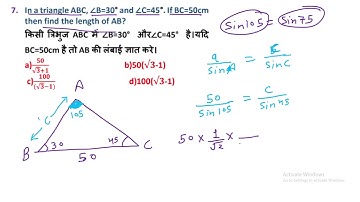 7. In a triangle ABC, ∠B=30° and ∠C=45°. If BC=50cm
then find the length of AB?
किसी त्रिभुज ABC में ∠B=30° और∠C=45° है।यदि
BC=50cm है तो AB की लंबाई ज्ञात करे।
a) 50/(√3+1) b)50(√3-1)
c) 100/(√3-1) d)100(√3-1)
sin105 = sin75
a/sinA = c/sinC
50/sin105 = c/sin45
50 × 1/√2 ×
A
105
'c'
B 30 45 C
50
Activate Windows